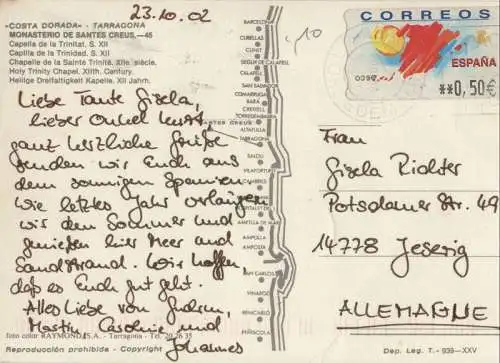 23.10.02
"COSTA DORADA" - TARRAGONA
MONASTERIO DE SANTES CREUS.—45
Capella de la Trinitat, S. XII
Capilla de la Trinidad. S. XII
Chapelle de la Sainte Trinité. XIIe siècle.
Holy Trinity Chapel. XIIth. Century.
Heilige Dreifaltigkeit Kapelle. XII Jahrh.
Liebe Tante Gisela,
lieber Onkel
ganz herzliche Grüße
senden wir Euch aus
dem sonnigen Spanien.
Wie letztes Jahr verlängern
wir den Sommer und
genießen hier Meer und
Sandstrand. Wir hoffen,
daß es Euch gut geht.
Alles Liebe von Gudrun,
Martin Caroline und
Johannes
foto color RAYMOND S.A. - Tarragona - Tel. 20 26 35
Reproducción prohibida - Copyright
BARCELONA
CUBELLAS
CUNIT
SEGUR DE CALAFELL
CALAFELL
SAN SALVADOR
COMARRUGA
BARA
CREIXELL
TORREDEMBARRA
SANTES CREUS
ALTAFULLA
TARRAGONA
SALOU
VILAFORTUNY
CAMBRILS
HOSPITALET
AMETLLA DE MAR
AMPOLLA
AMPOSTA
SAN CARLOS
VINAROZ
BENICARLO
PEÑISCOLA
,10
CORREOS
ESPAÑA
**0,50€
Frau
Gisela Richter
Potsdamer Str. 49
14778 Jeserig
ALLEMAGNE
Dep. Leg. T. - 939—XXV